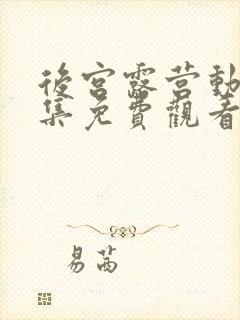 後宮露营動
集免費觀看
易茜